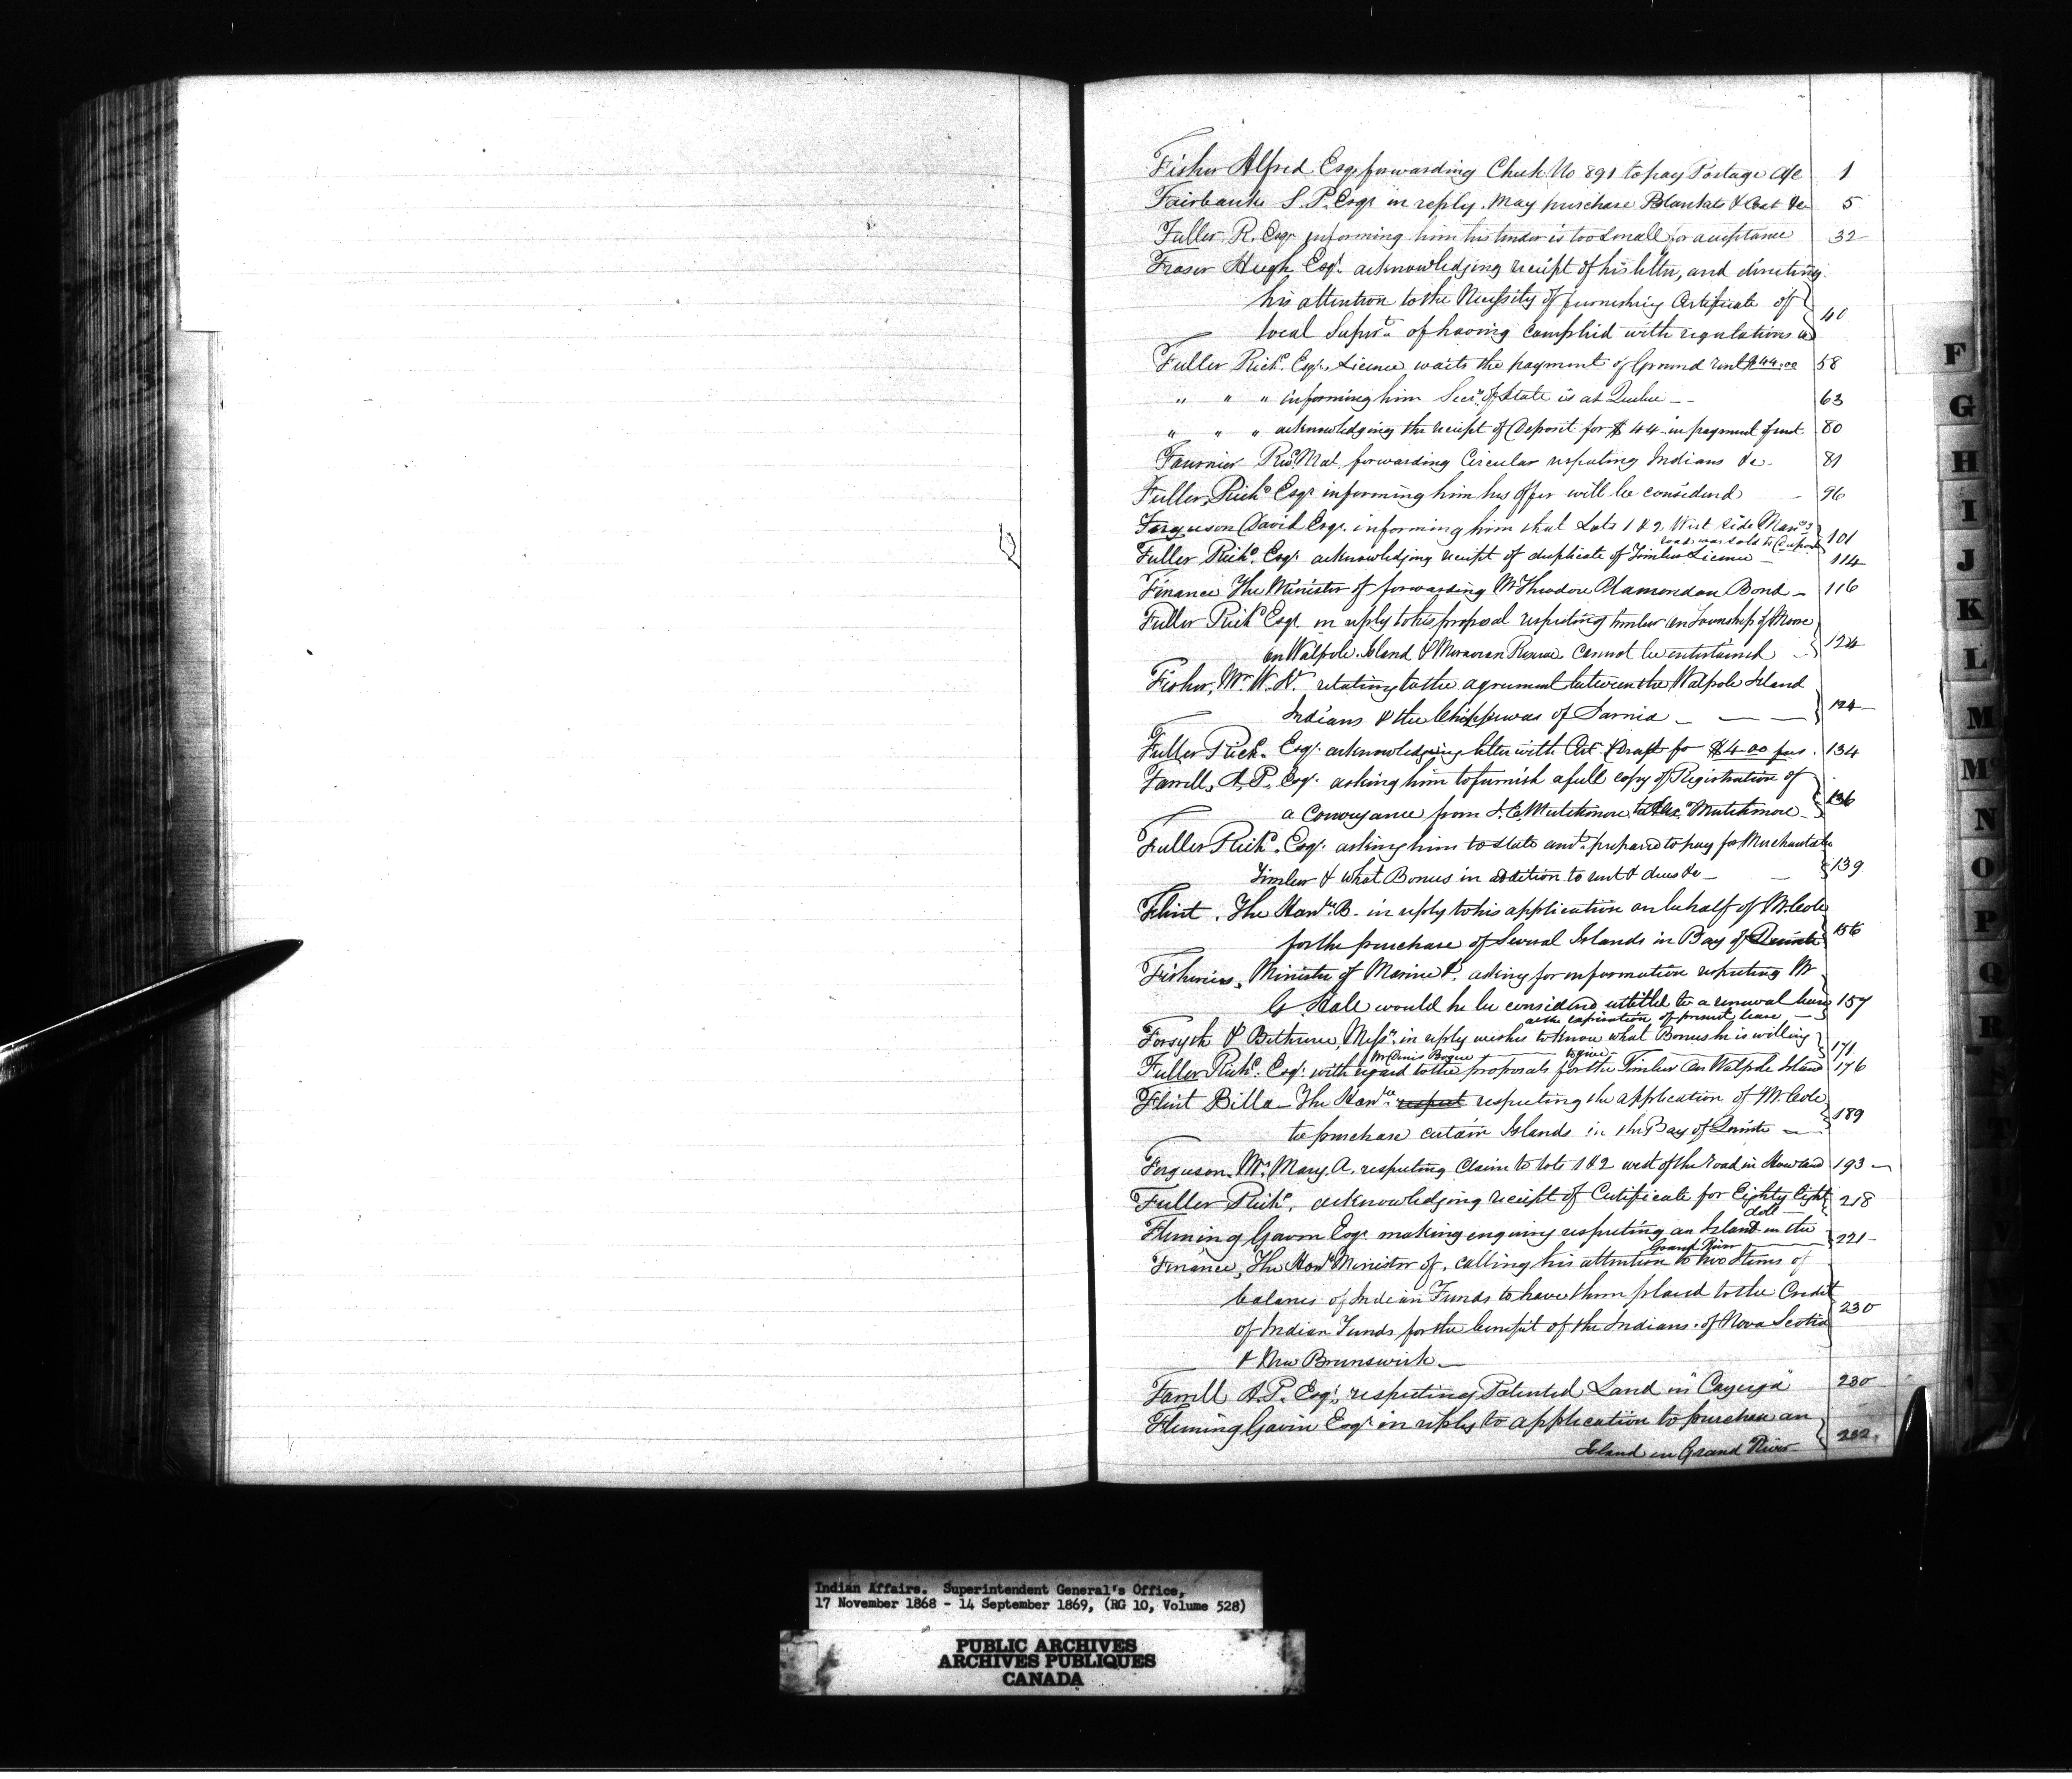 Fisher Alfred Esqr forwarding Check No 891 to pay Postage a/c 1
Fairbanks S. P. Esqr in reply. May purchase Blankets & Coat &c 5
Fuller R. Esqr informing him his tender is too small for acceptance 32
Fraser Hugh Esqr. acknowledging receipt of his letter, and directing
his attention to the Necessity of furnishing Certificate of
local Supert. of having complied with regulations 40
Fuller Richd. Esqr. Licence waits the payment of Ground rent $44.00 58
" " " informing him Secy. of State is at Quebec 63
" " " acknowledging the receipt of Deposit for $44 in payment of rent 80
Fournier Revd Mal. forwarding Circular respecting Indians &c 81
Fuller, Richd Esqr informing him his offer will be considered 96
Ferguson David Esqr. informing him that Lots 1 & 2 West side
road was sold to 101
Fuller Richd. Esqr. acknowledging receipt of duplicate of Timber Licence 114
Finance The Minister of forwarding Mr Theodore Plamondon Bond 116
Fuller Richd Esqr. in reply to his proposal respecting timber in Township of Moore
on Walpole Island & Moravian Reserve cannot be entertained 124
Fisher, Mr. W. relating to the agreement between the Walpole Island
Indians & the Chippewas of Sarnia 124
Fuller Richd. Esqr. acknowledging letter with Draft for $4.00 fees 134
Farrell, A. P. Esqr. asking him to furnish a full copy of Registration of
a Conveyance from J. E. Mutchmore to Mutchmore 136
Fuller Richd. Esqr. asking him to state amt. prepared to pay for Merchantable
Timber & what Bonus in addition to rent & dues &c 139
Flint, The Honble. B. in reply to his application on behalf of Mr. Cole
for the purchase of Several Islands in Bay of Quinte 156
Fisheries, Minister of Marine &. asking for information respecting Mr
G. Hale would he be considered entitled to a renewal
at the expiration of present lease 157
Forsyth & Bethune, Messrs. in reply wishes to know what Bonus he is willing
Mr Denis Bogue to give 171
Fuller Richd. Esqr. with regard to the proposals for the Timber on Walpole Island 176
Flint Billa The Honble. respect respecting the application of Mr. Cole
to purchase certain Islands in the Bay of Quinte 189
Ferguson, Mrs. Mary. A. respecting Claim to lots 1 & 2 west of the road in Howland 193
Fuller Richd. acknowledging receipt of Certificate for Eighty Eight
doll 218
Fleming Gavin Esqr. making enquiry respecting an Island in the
Grand River 221
Finance, The Honble Minister of, calling his attention to two Items of
balances of Indian Funds to have them placed to the Credit
of Indian Funds for the benefit of the Indians of Nova Scotia 230
& New Brunswick
Farrell A. P. Esqr. respecting Patented Land in "Cayuga" 230
Fleming Gavin Esqr in reply to application to purchase an
Island in Grand River 232
F
G
H
I
J
K
L
M
Mc
N
O
P
Q
R
S
T
Indian Affairs. Superintendent General's Office,
17 November 1868 - 14 September 1869, (RG 10, Volume 528)
PUBLIC ARCHIVES
ARCHIVES PUBLIQUES
CANADA